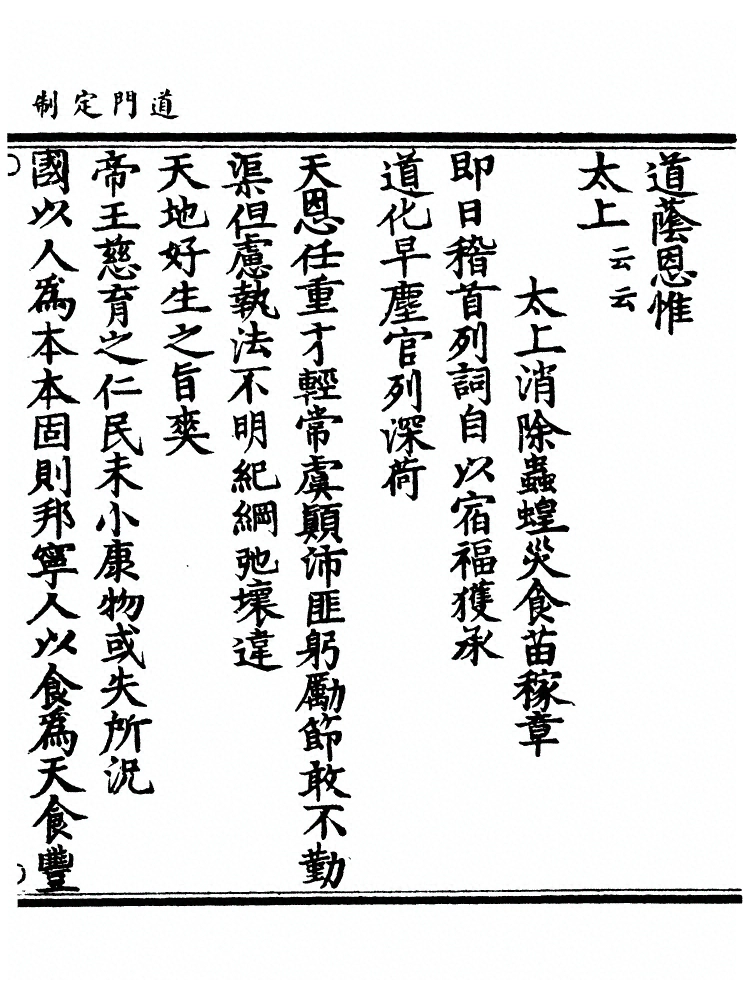 道門定制
道蔭恩惟
太上云云
太上消除蟲蝗災食苗稼章
即日稽首列詞自以宿福獲承
道化早塵官列深荷
天恩任重才輕常虞顛沛匪躬勵節敢不勤
渠但慮執法不明紀綱弛壞違
天地好生之旨爽
帝王慈育之仁民未小康物或失所況
國以人爲本本固則邦寧人以食爲天食豐